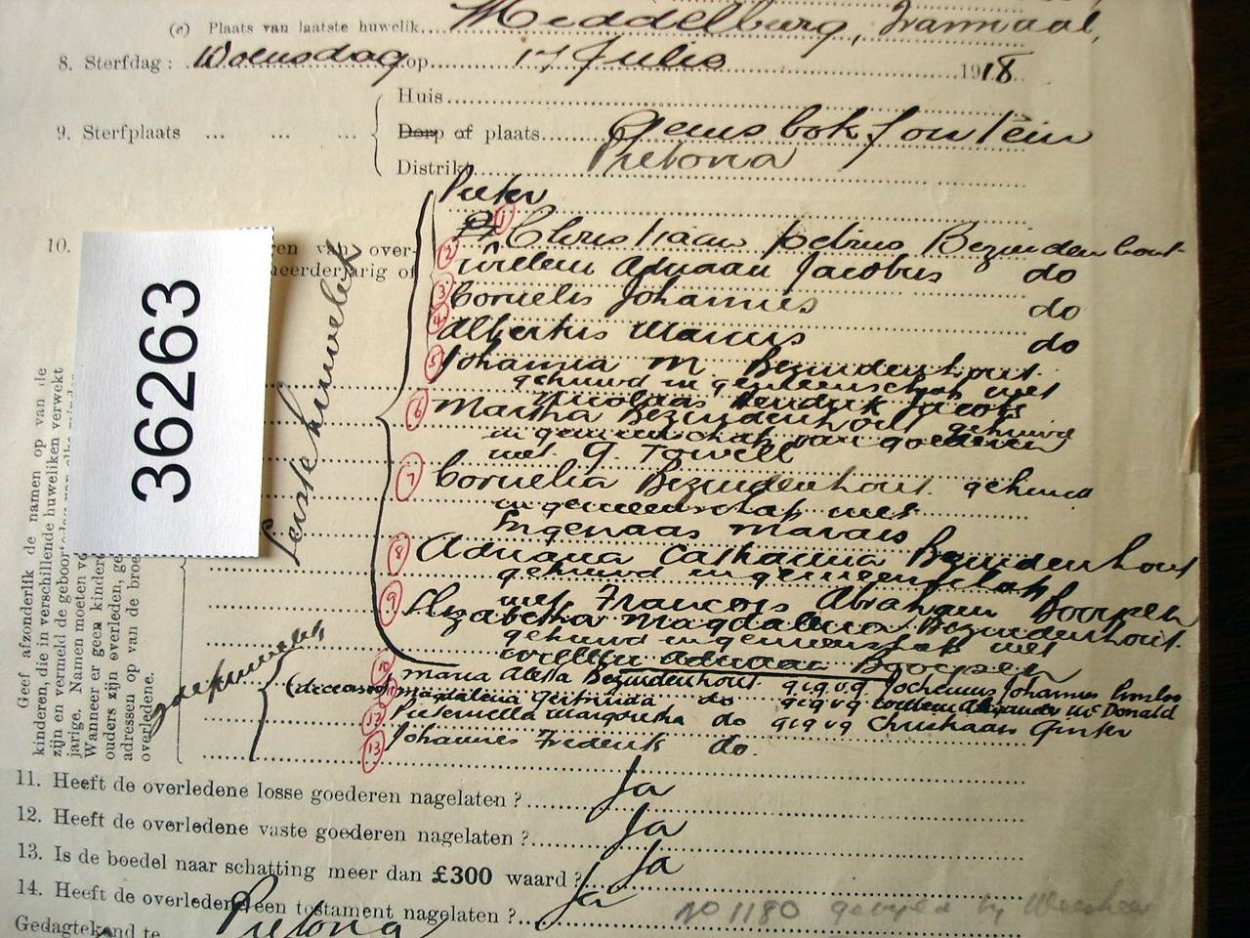 (c) Plaats van laatste huwelik Middelburg, Transvaal,
8. Sterfdag: Woensdag op 17 Julio 1918
9. Sterfplaats ... ... ... Huis
Dorp of plaats Gemsbokfontein
Distrikt Pretoria
Pieter
10. ren van over-
① Christiaan Petrus Bezuidenhout
eerderjarig of
② Willem Adriaan Jacobus do
③ Cornelis Johannes do
④ Albertus Marcus do
⑤ Johanna M. Bezuidenhout
gehuwd in gemeenschap met
Nicolaas Hendrik Jacobs
⑥ Martha Bezuidenhout gehuwd
in gemeenschap van goederen
met G. Towell
⑦ Cornelia Bezuidenhout gehuwd
in gemeenschap met
Ingenaas Marais
⑧ Adriana Catharina Bezuidenhout
gehuwd in gemeenschap
met Francois Abraham
⑨ Elizabetha Magdalena Bezuidenhout
gehuwd in gemeenschap met
Willem Adriaan
⑩ Maria Aletta Bezuidenhout g.i.g.v.g. Jochemus Johannes
(deceased) Magdalena Gertruida do g.i.g.v.g. Willem Alexander McDonald
⑫ Pieternella Margaretha do g.i.g.v.g. Christiaan
⑬ Johannes Frederik do.
Eerste huwelik
2de huwelik
36263
Geef afzonderlik de namen op van de
kinderen, die in verschillende huweliken verwekt
zijn en vermeld de geboorte
jarige. Namen moeten
Wanneer er geen kindere
ouders zijn overleden, ge
adressen op van de broe
overledene.
11. Heeft de overledene losse goederen nagelaten? Ja
12. Heeft de overledene vaste goederen nagelaten? Ja
13. Is de boedel naar schatting meer dan £300 waard? Ja
14. Heeft de overledene een testament nagelaten? Ja
No 1180 by Weesheer
Gedagtekend te Pretoria